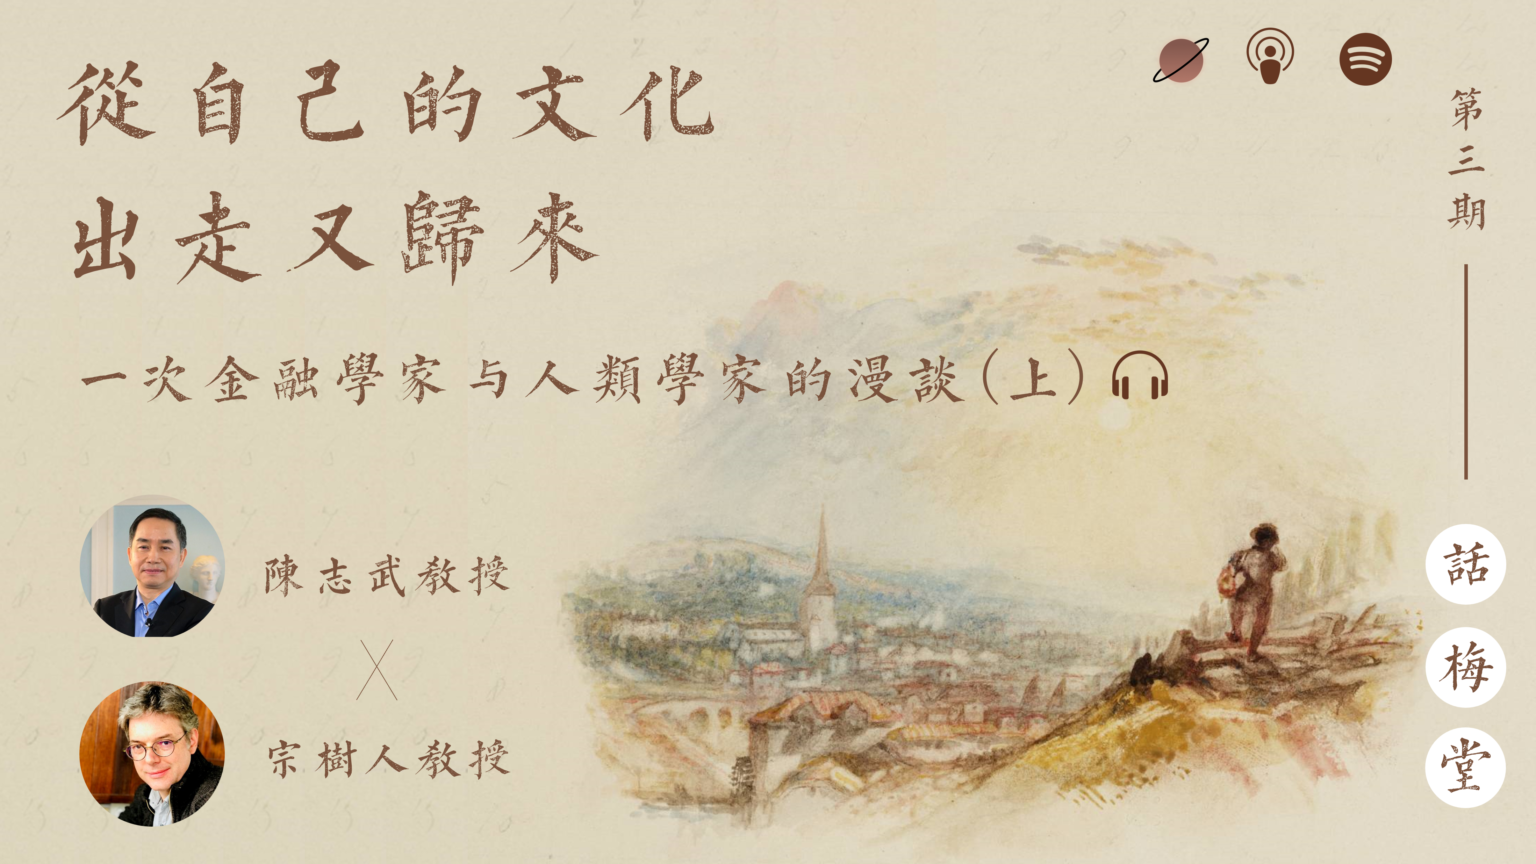 從自己的文化
出走又歸來
一次金融學家与人類學家的漫談(上)
陳志武教授
宗樹人教授
第三期
話梅堂